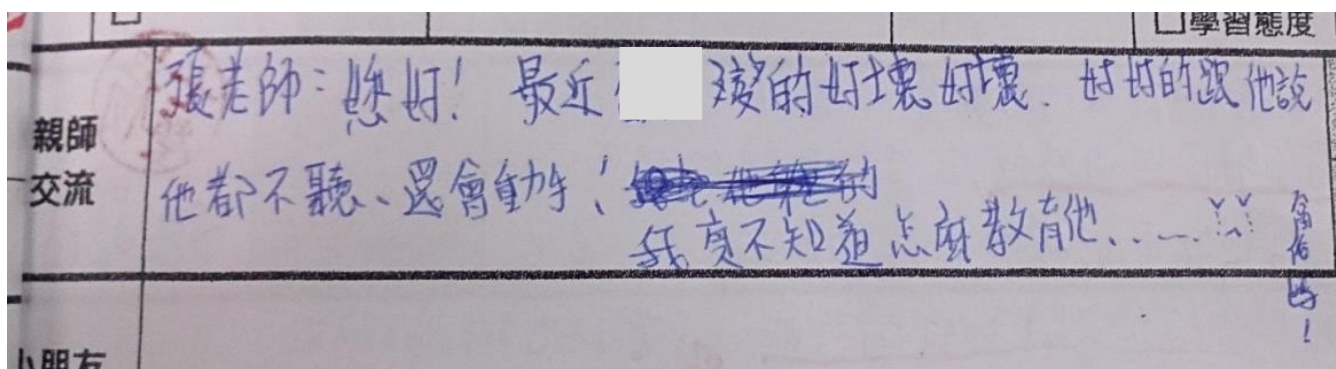 學習態度
親師
交流
張老師:您好! 最近 變的好壞好壞.好好的跟他說
他都不聽、還會動手!
我真不知道怎麼教育他......
小朋友